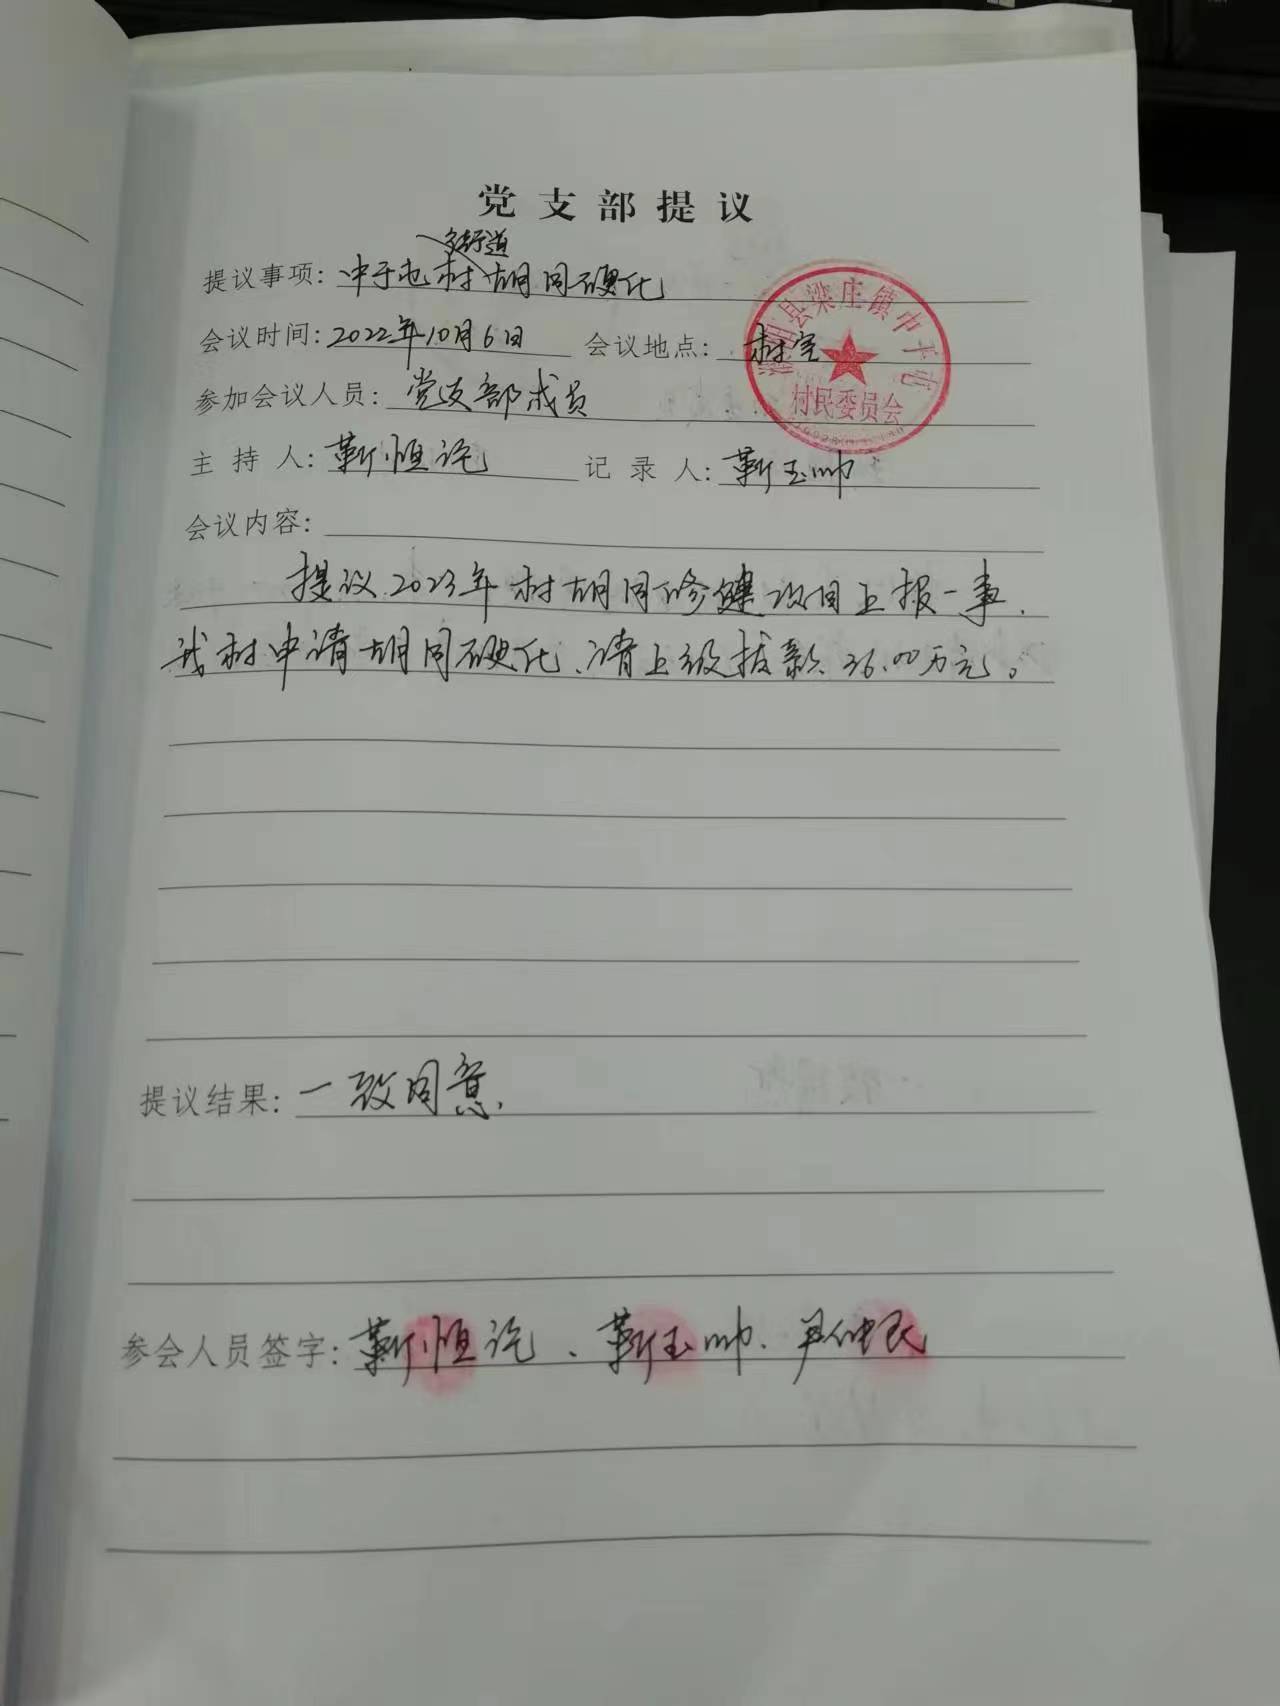 党支部提议
街道
提议事项：冲于屯村胡同硬化
会议时间：2022年10月6日 会议地点：村室
县梁庄镇中于屯
村民委员会
参加会议人员：党支部成员
主持人：靳恒讫 记录人：靳玉帅
会议内容：
提议2023年村胡同修建项目上报一事.
我村申请胡同硬化、请上级拔款36.00万元。
提议结果：一致同意.
参会人员签字：靳恒讫、靳玉帅.尹仲民